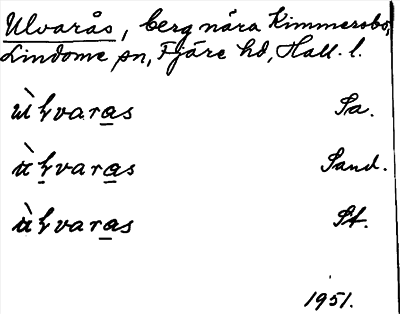 Ulvarås, berg nära Kimmersbo,
Lindome sn, Fjäre hd, Hall. l.
ùɫvaras Sa.
ùɫvaras Sand.
ùɫvaras St.
1951.